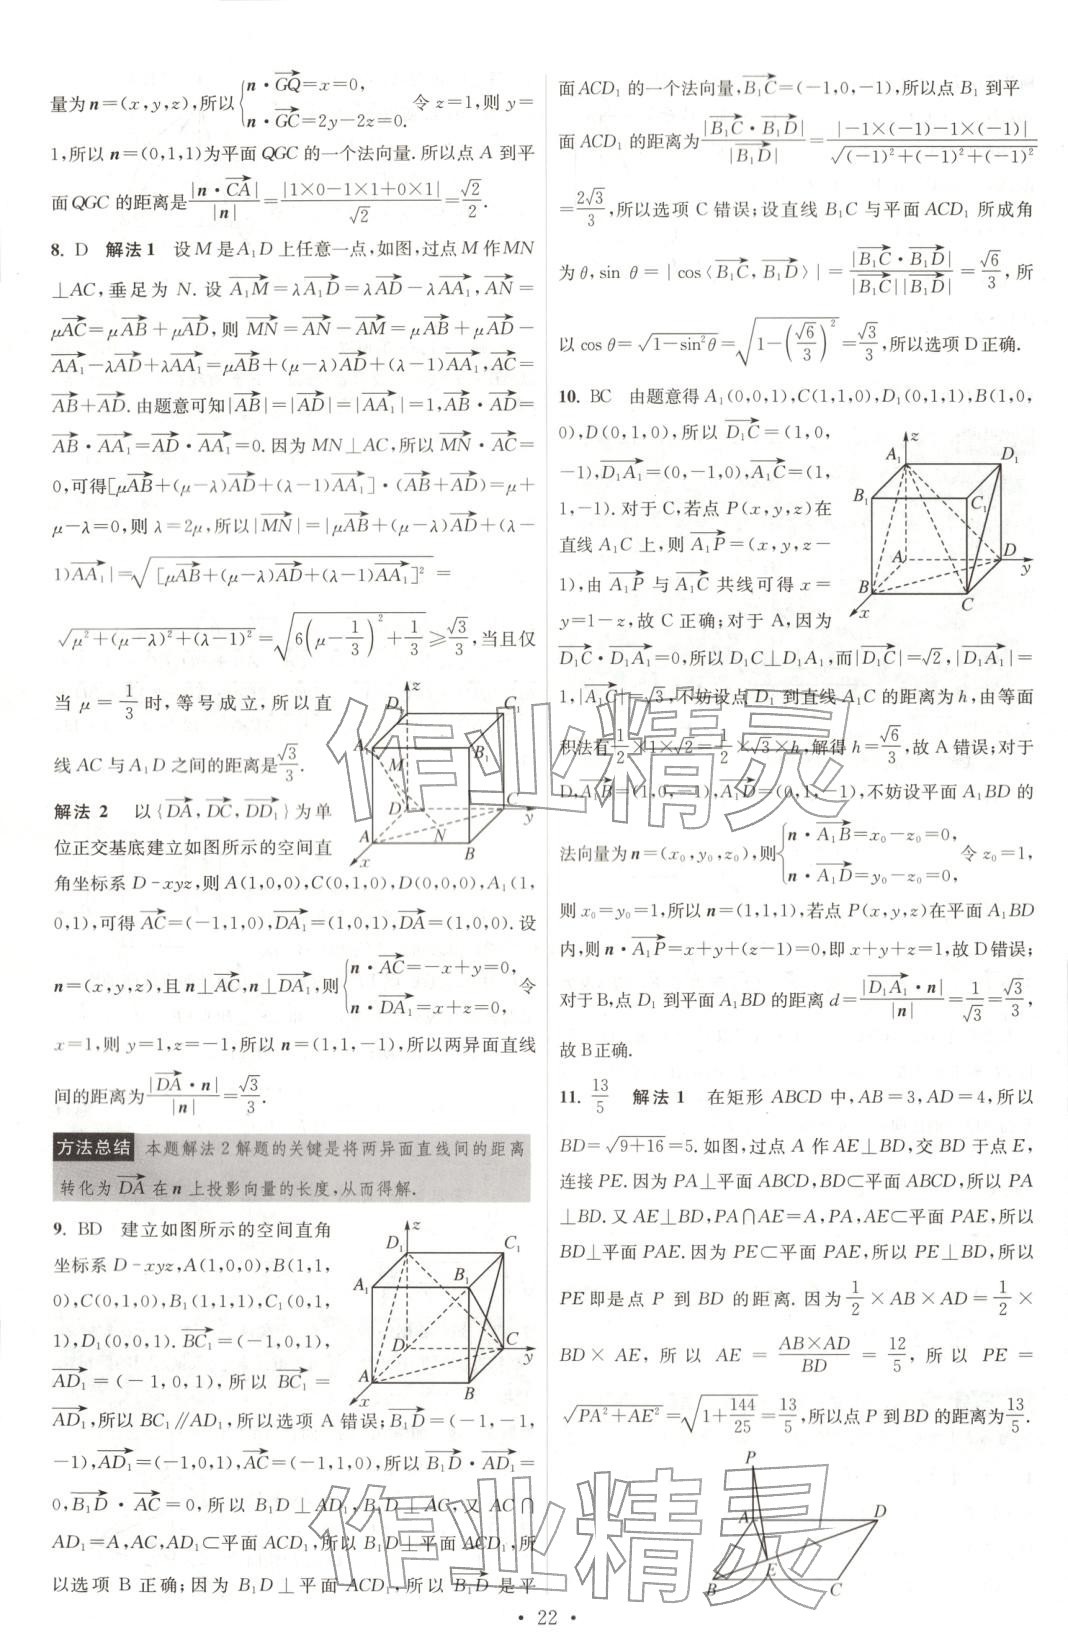 量为 n=(x,y,z),所以{n·GQ=x=0, n·GC=2y-2z=0. 令 z=1,则 y=
1,所以 n=(0,1,1)为平面 QGC 的一个法向量.所以点 A 到平
面 QGC 的距离是|n·CA|/|n|=|1×0-1×1+0×1|/√2=√2/2.
8. D 解法 1 设 M 是 A₁D 上任意一点,如图,过点 M 作 MN
⊥AC,垂足为 N. 设 A₁M=λA₁D=λAD-λAA₁,AN=
μAC=μAB+μAD,则 MN=AN-AM=μAB+μAD-
AA₁-λAD+λAA₁=μAB+(μ-λ)AD+(λ-1)AA₁,AC=
AB+AD.由题意可知|AB|=|AD|=|AA₁|=1,AB·AD=
AB·AA₁=AD·AA₁=0.因为 MN⊥AC,所以 MN·AC=
0,可得[μAB+(μ-λ)AD+(λ-1)AA₁]·(AB+AD)=μ+
μ-λ=0,则 λ=2μ,所以|MN|=|μAB+(μ-λ)AD+(λ-
1)AA₁|=√([μAB+(μ-λ)AD+(λ-1)AA₁]²)=
√(μ²+(μ-λ)²+(λ-1)²)=√(6(μ-1/3)²+1/3)≥√3/3,当且仅
当 μ=1/3时,等号成立,所以直
线 AC 与 A₁D 之间的距离是√3/3.
z D₁ C₁ A₁ B₁ M D C y N A B x
解法 2 以{DA,DC,DD₁}为单
位正交基底建立如图所示的空间直
角坐标系 D-xyz,则 A(1,0,0),C(0,1,0),D(0,0,0),A₁(1,
0,1),可得 AC=(-1,1,0),DA₁=(1,0,1),DA=(1,0,0).设
n=(x,y,z),且 n⊥AC,n⊥DA₁,则{n·AC=-x+y=0, n·DA₁=x+z=0, 令
x=1,则 y=1,z=-1,所以 n=(1,1,-1),所以两异面直线
间的距离为|DA·n|/|n|=√3/3.
方法总结 本题解法 2 解题的关键是将两异面直线间的距离
转化为 DA 在 n 上投影向量的长度,从而得解.
9. BD 建立如图所示的空间直角
坐标系 D-xyz,A(1,0,0),B(1,1,
0),C(0,1,0),B₁(1,1,1),C₁(0,1,
1),D₁(0,0,1). BC₁=(-1,0,1),
AD₁=(-1,0,1),所以 BC₁=
z D₁ C₁ A₁ B₁ D C y A B x
AD₁,所以 BC₁∥AD₁,所以选项 A 错误;B₁D=(-1,-1,
-1),AD₁=(-1,0,1),AC=(-1,1,0),所以 B₁D·AD₁=
0,B₁D·AC=0,所以 B₁D⊥AD₁,B₁D⊥AC,又 AC∩
AD₁=A,AC,AD₁⊂平面 ACD₁,所以 B₁D⊥平面 ACD₁,所
以选项 B 正确;因为 B₁D⊥平面 ACD₁,所以 B₁D 是平
面 ACD₁ 的一个法向量,B₁C=(-1,0,-1),所以点 B₁ 到平
面 ACD₁ 的距离为|B₁C·B₁D|/|B₁D|=|-1×(-1)-1×(-1)|/√((-1)²+(-1)²+(-1)²)
=2√3/3,所以选项 C 错误;设直线 B₁C 与平面 ACD₁ 所成角
为 θ,sin θ=|cos⟨B₁C,B₁D⟩|=|B₁C·B₁D|/|B₁C||B₁D|=√6/3,所
以 cos θ=√(1-sin²θ)=√(1-(√6/3)²)=√3/3,所以选项 D 正确.
10. BC 由题意得 A₁(0,0,1),C(1,1,0),D₁(0,1,1),B(1,0,
0),D(0,1,0),所以 D₁C=(1,0,
-1),D₁A₁=(0,-1,0),A₁C=(1,
1,-1).对于 C,若点 P(x,y,z)在
直线 A₁C 上,则 A₁P=(x,y,z-
1),由 A₁P 与 A₁C 共线可得 x=
y=1-z,故 C 正确;对于 A,因为
z A₁ D₁ B₁ C₁ A D y B C x
D₁C·D₁A₁=0,所以 D₁C⊥D₁A₁,而|D₁C|=√2,|D₁A₁|=
1,|A₁C|=√3,不妨设点 D₁ 到直线 A₁C 的距离为 h,由等面
积法有1/2×1×√2=1/2×√3×h,解得 h=√6/3,故 A 错误;对于
D,A₁B=(1,0,-1),A₁D=(0,1,-1),不妨设平面 A₁BD 的
法向量为 n=(x₀,y₀,z₀),则{n·A₁B=x₀-z₀=0, n·A₁D=y₀-z₀=0, 令 z₀=1,
则 x₀=y₀=1,所以 n=(1,1,1),若点 P(x,y,z)在平面 A₁BD
内,则 n·A₁P=x+y+(z-1)=0,即 x+y+z=1,故 D 错误;
对于 B,点 D₁ 到平面 A₁BD 的距离 d=|D₁A₁·n|/|n|=1/√3=√3/3,
故 B 正确.
11. 13/5 解法 1 在矩形 ABCD 中,AB=3,AD=4,所以
BD=√(9+16)=5.如图,过点 A 作 AE⊥BD,交 BD 于点 E,
连接 PE.因为 PA⊥平面 ABCD,BD⊂平面 ABCD,所以 PA
⊥BD.又 AE⊥BD,PA∩AE=A,PA,AE⊂平面 PAE,所以
BD⊥平面 PAE.因为 PE⊂平面 PAE,所以 PE⊥BD,所以
PE 即是点 P 到 BD 的距离.因为1/2×AB×AD=1/2×
BD×AE,所以 AE=AB×AD/BD=12/5,所以 PE=
√(PA²+AE²)=√(1+144/25)=13/5,所以点 P 到 BD 的距离为13/5.
P A D E B C
作业精灵
作业精灵
· 22 ·